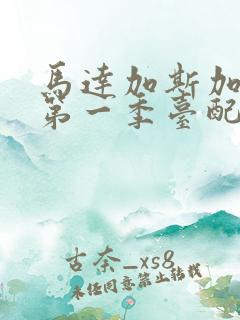 馬達加斯加
第一季臺配
古奈_xs8
未经同意禁止转载